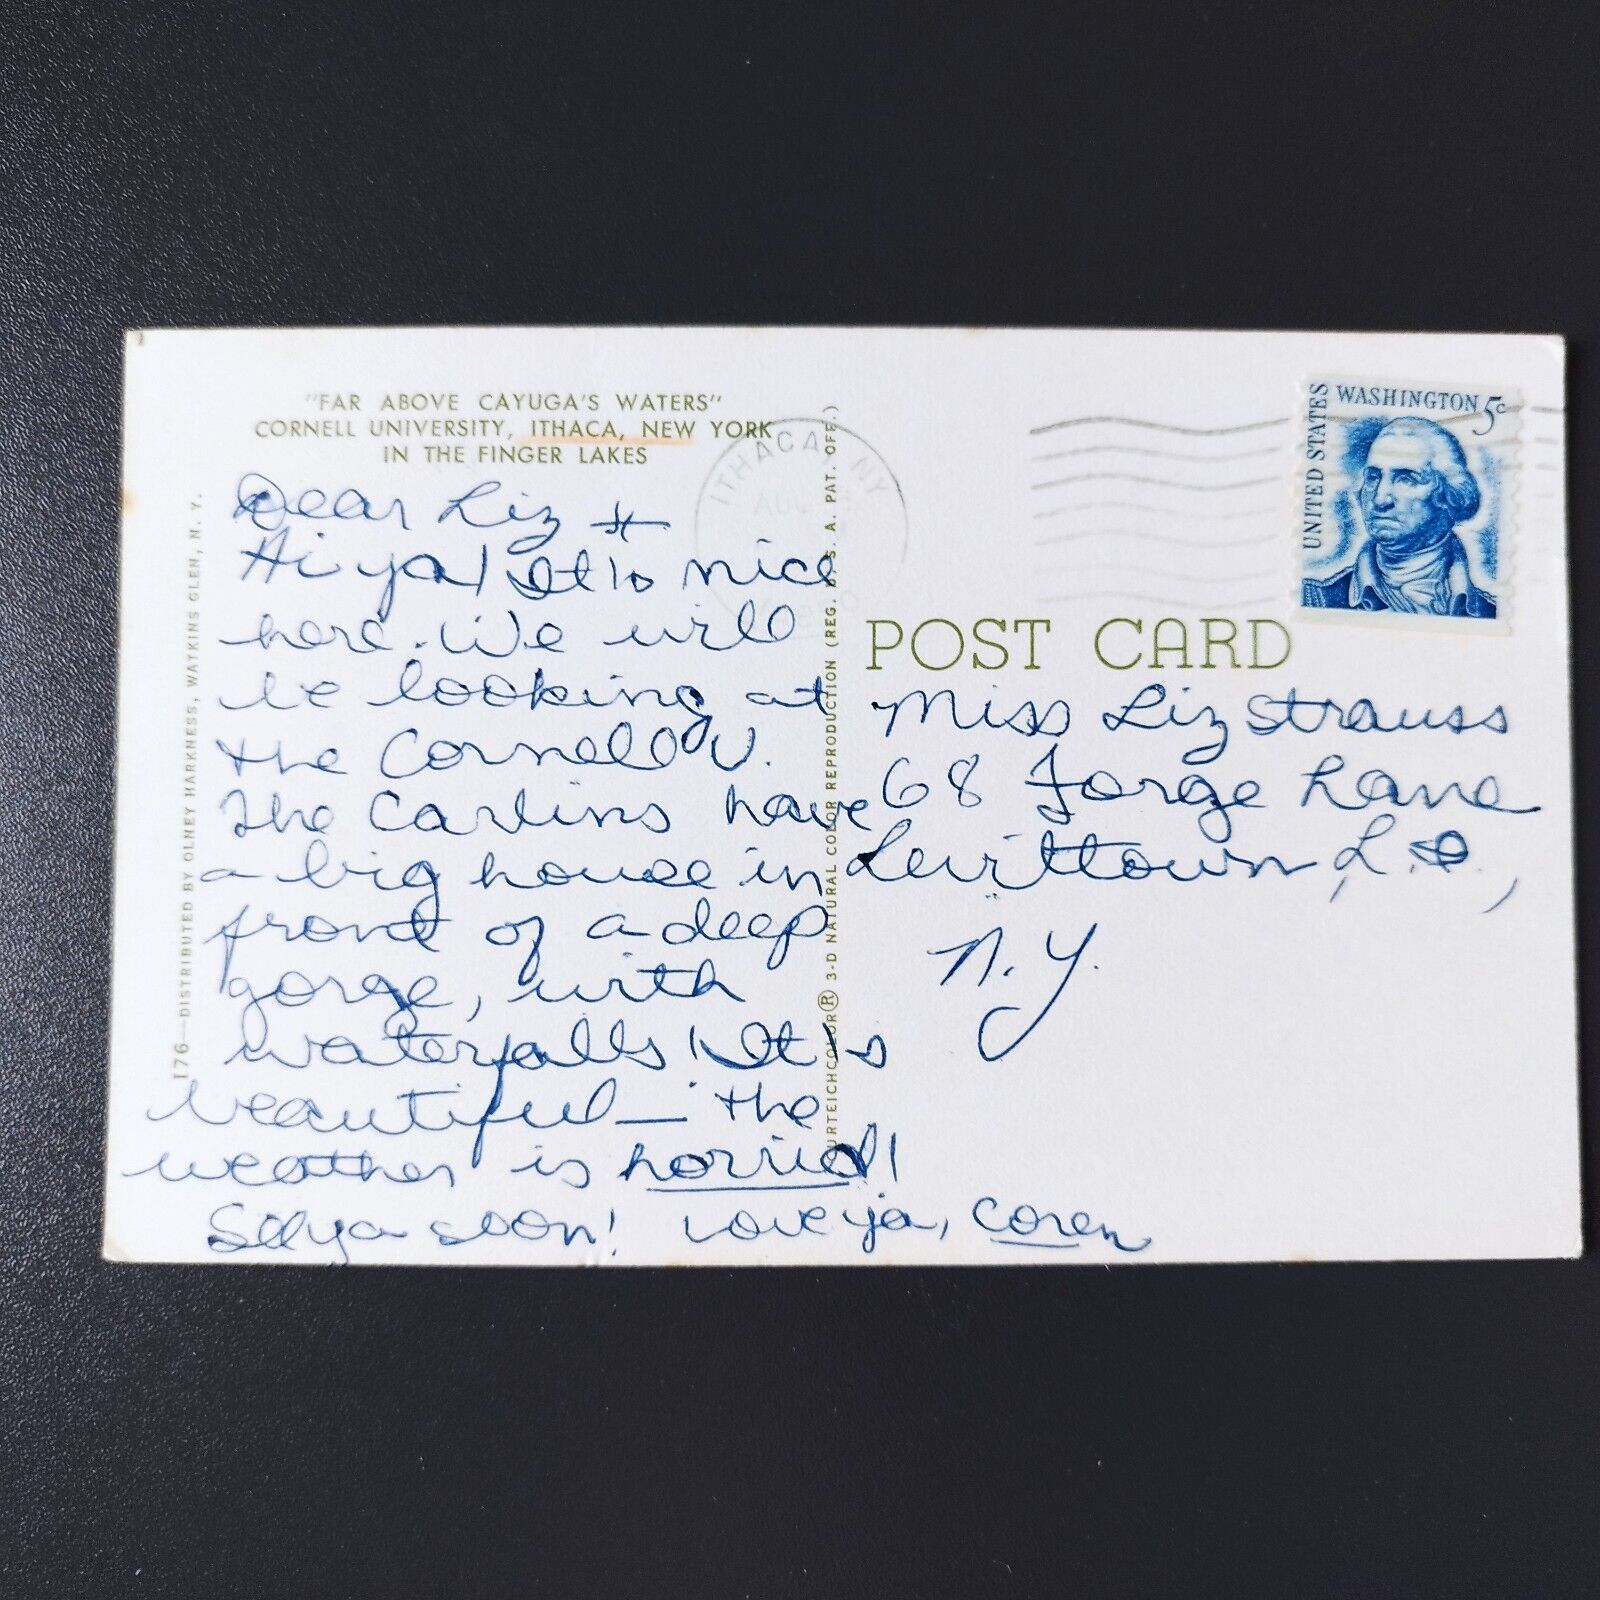 "FAR ABOVE CAYUGA'S WATERS"
CORNELL UNIVERSITY, ITHACA, NEW YORK
IN THE FINGER LAKES
Dear Liz +
Hi ya! It is nice
here. We will
be looking at
the Cornell U.
The Carlins have
a big house in
front of a deep
gorge, with
waterfalls! It is
beautiful — the
weather is horrid!
See ya soon! Love ya, Coren
176—DISTRIBUTED BY OLNEY HARKNESS, WATKINS GLEN, N. Y.
CURTEICHCOLOR® 3-D NATURAL COLOR REPRODUCTION (REG. U. S. A. PAT. OFF.)
ITHACA, NY
AUG
UNITED STATES
WASHINGTON 5c
POST CARD
Miss Liz Strauss
68 Forge Lane
Levittown, L.I.,
N.Y.